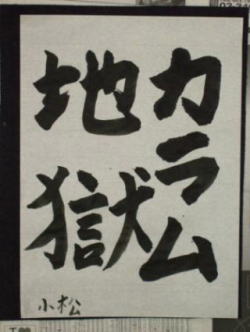 カラム
地獄
小松